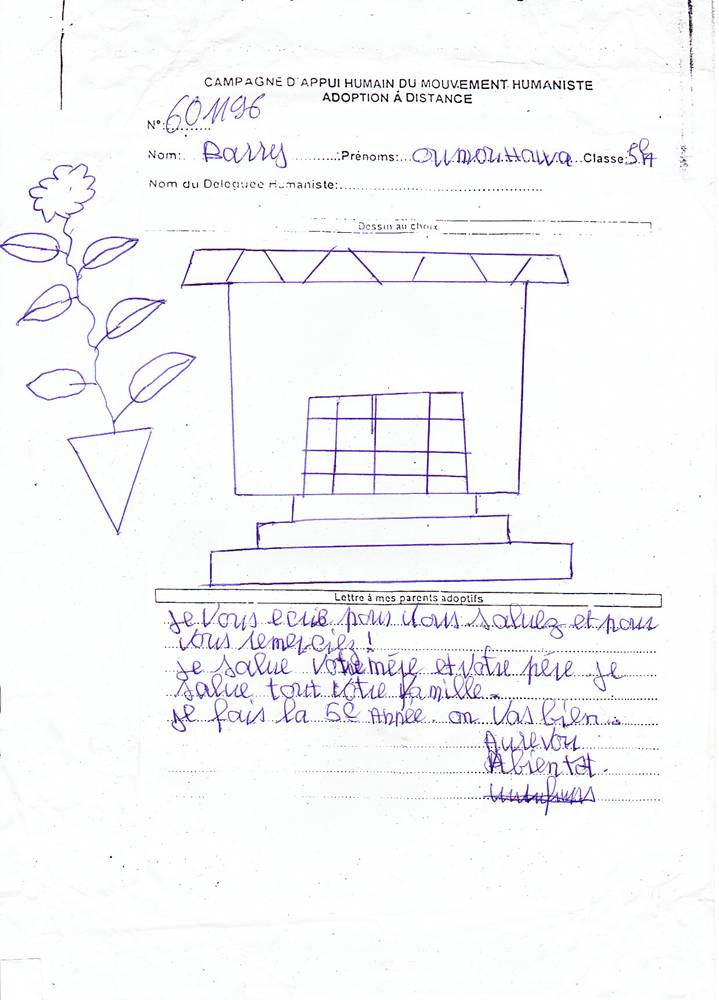 CAMPAGNE D'APPUI HUMAIN DU MOUVEMENT HUMANISTE
ADOPTION À DISTANCE
N°: 601196
Nom: Barry Prénoms: oumou Hawa Classe: 5èA
Nom du Deleguee Humaniste:
Dessin au choix
Lettre à mes parents adoptifs
je vous ecrie pour vous saluez et pour
vous remerciez!
je salue votre mère et votre père je
salue tout votre famille.
je fais la 5e Année. on vas bien.
Aurevou
Abientot.